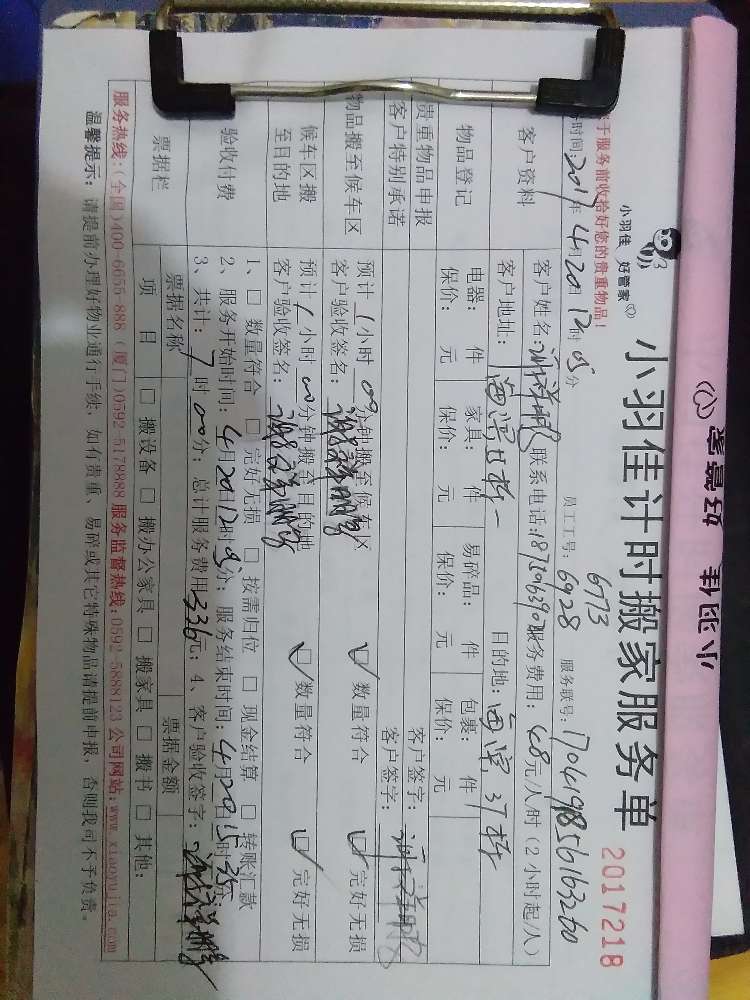 小羽佳 好管家
小羽佳计时搬家服务单
2017218
于服务前收拾好您的贵重物品！
员工工号： 6773
6928
服务联号：
时间：2017年4月20日12时05分
客户资料
客户姓名：
联系电话：
服务费用：48元/人/时（2小时起/人）
客户地址：
目的地：
物品登记
电器： 件 家具： 件 易碎品： 件 包裹： 件
保价： 元 保价： 元 保价： 元 保价： 元
贵重物品申报
客户签字：
客户特别承诺
客户签字：
物品搬至候车区
预计1小时00分钟搬至候车区
☑数量符合 ☑完好无损
客户验收签名：
候车区搬至目的地
预计1小时00分钟搬至目的地
☑数量符合 ☑完好无损
客户验收签名：
验收付费
1、□ 数量符合 □ 完好无损 □ 按需归位 □ 现金结算 □ 转账汇款
2、服务开始时间：4月20日12时05分；服务结束时间：4月20日15时
3、共计：7时00分；总计服务费用336元；4、客户验收签字：
票据栏
票据名称
票据金额
项 目
□ 搬设备 □ 搬办公家具 □ 搬家具 □ 搬书 □ 其他：
服务热线：(全国)400-6655-888 (厦门)0592-5178888 服务监督热线：0592-5888123 公司网站：www.xiaoyujia.com
温馨提示：请提前办理好物业通行手续，如有贵重、易碎或其它特殊物品请提前申报，否则我司不予负责。